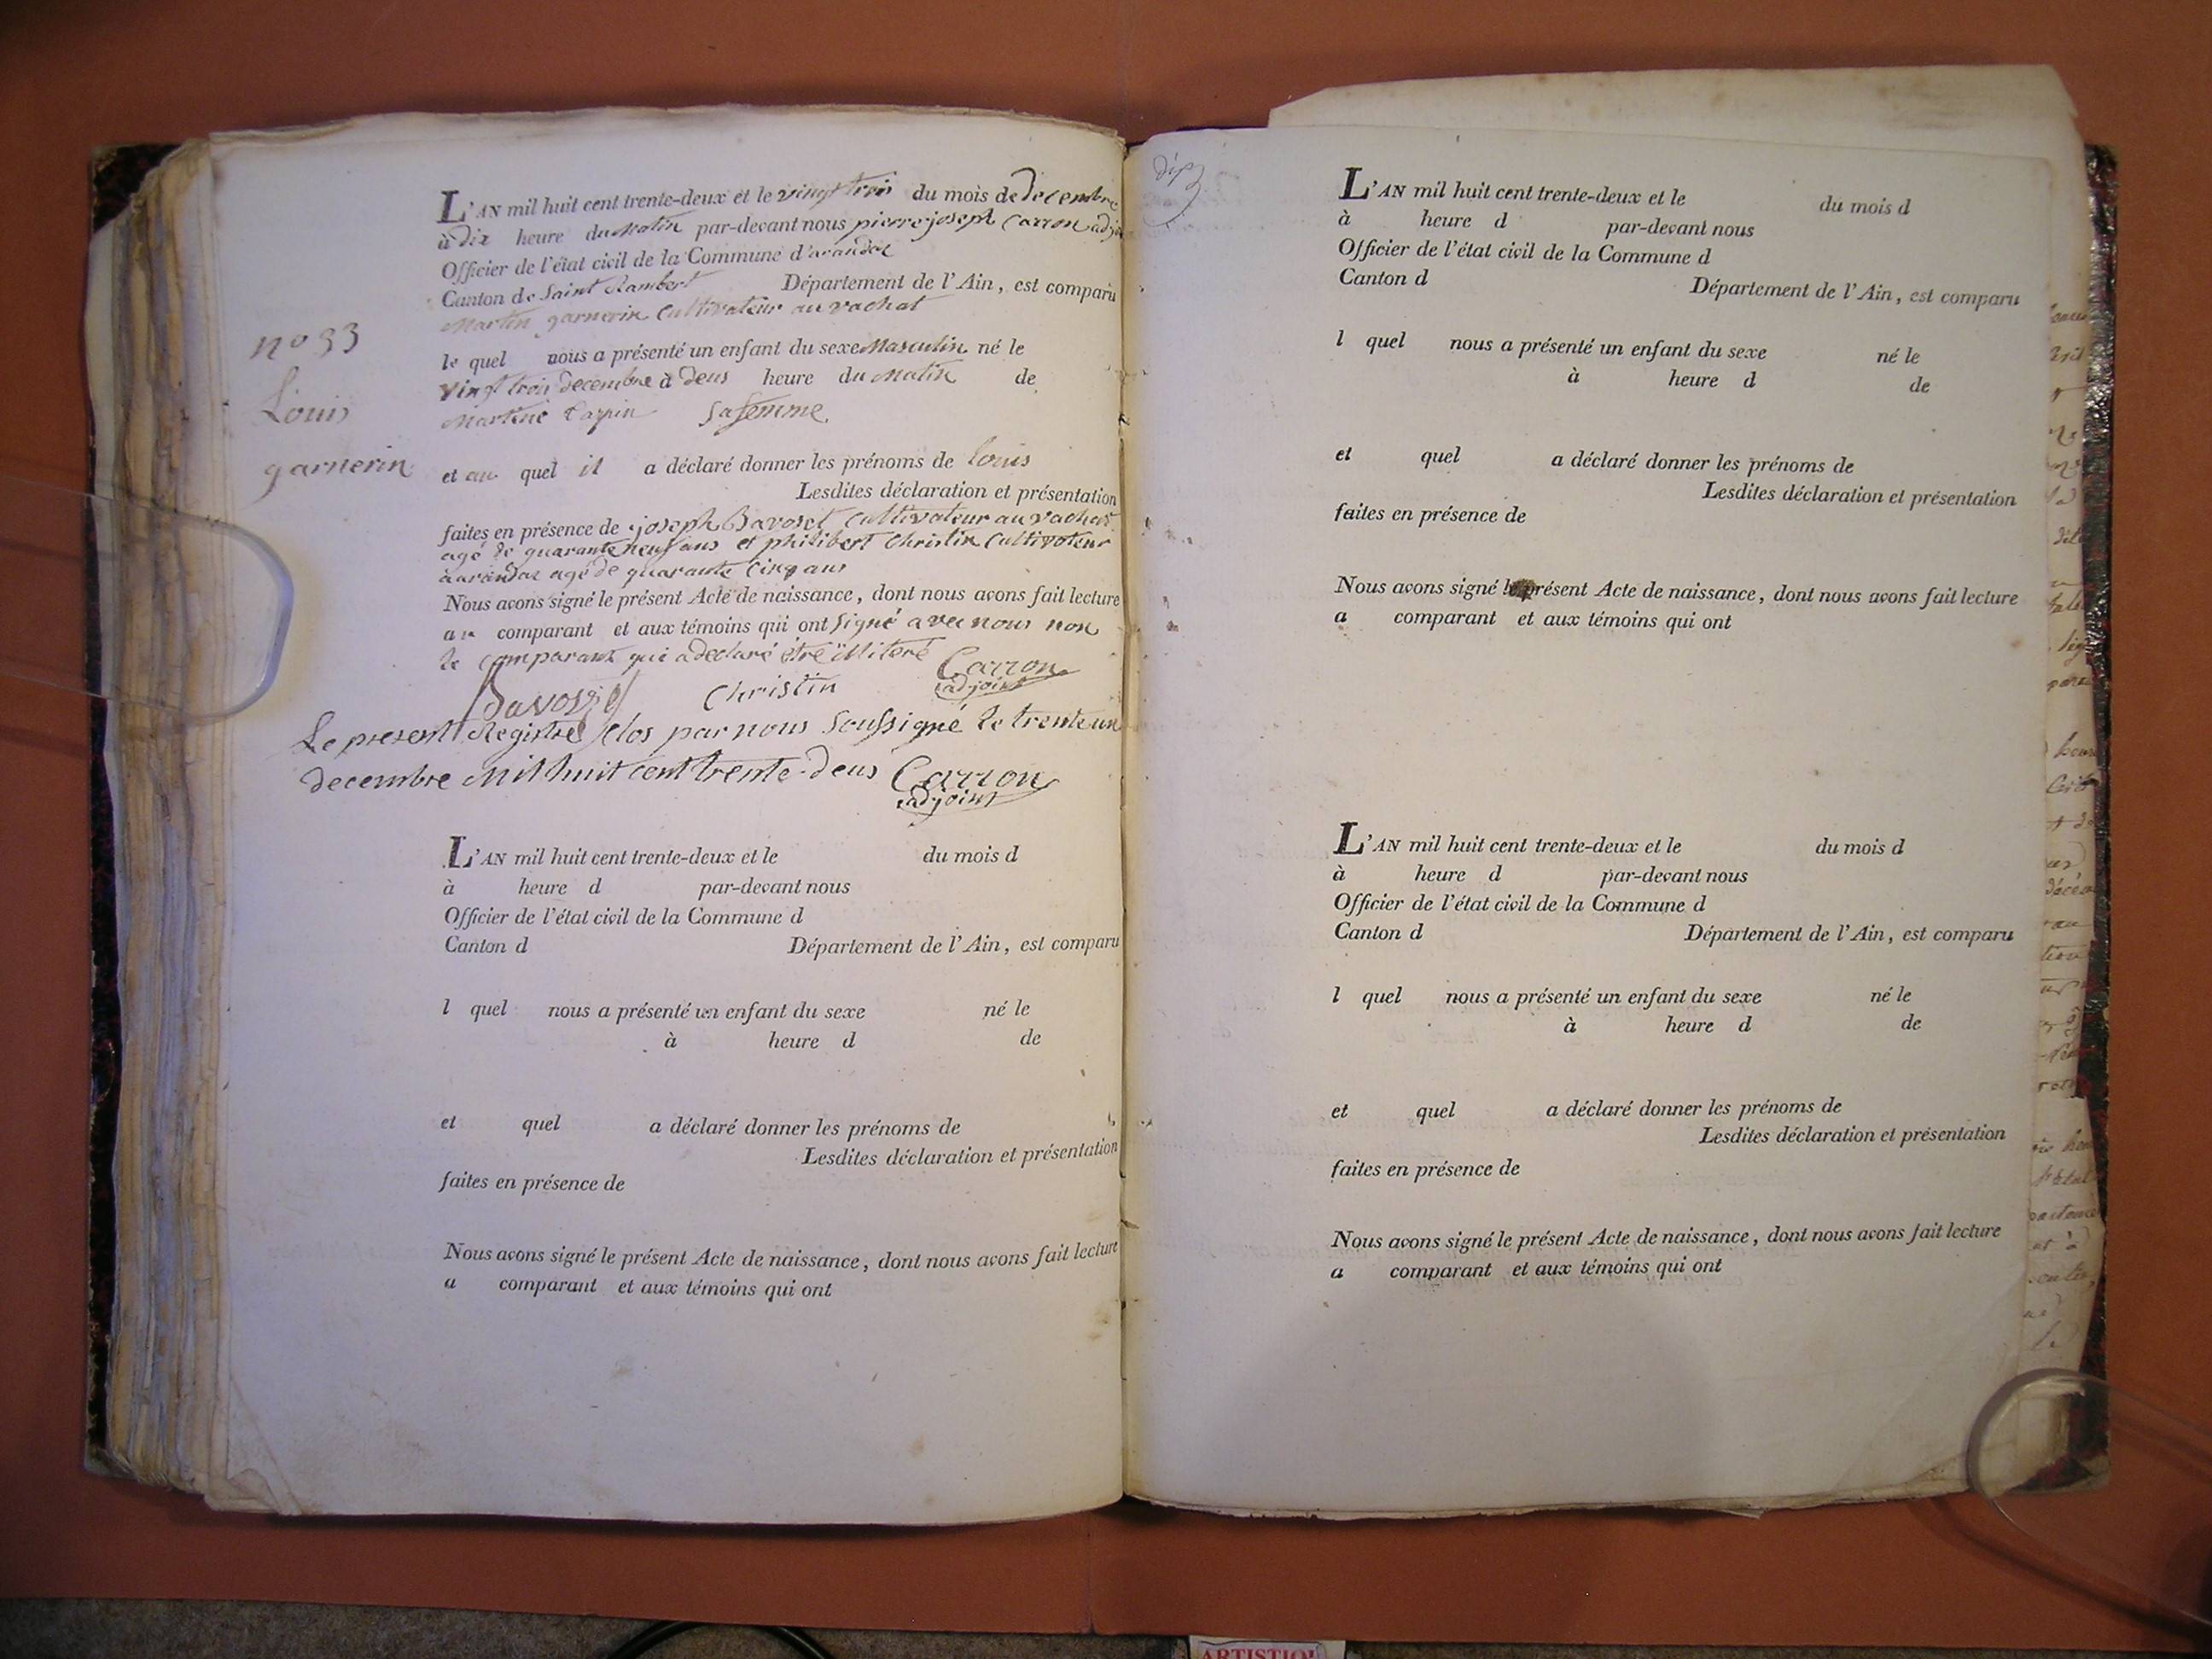 L'AN mil huit cent trente-deux et le vingt trois du mois de decembre
à dix heure du Matin par-devant nous pierre joseph Carron adj
Officier de l'état civil de la Commune d'arandas
Canton de Saint Rambert Département de l'Ain, est comparu
Martin garnerin Cultivateur au vachat
no 33
le quel nous a présenté un enfant du sexe Masculin né le
vingt trois decembre à deus heure du Matin de
Louis
Martine sa femme.
garnerin
et au quel il a déclaré donner les prénoms de louis
Lesdites déclaration et présentation
faites en présence de joseph Savoset Cultivateur au vachat
agé de quarante neuf ans et philibert Christin Cultivateur
a arandas agé de quarante Cinq ans
Nous avons signé le présent Acte de naissance, dont nous avons fait lecture
au comparant et aux témoins qui ont signé avec nous non
le comparant qui a declaré être illiteré
Christin Carron
adjoint
Le present Registre clos par nous Soussigné le trente un
decembre Mil huit cent trente-deus Carron
adjoint
L'AN mil huit cent trente-deux et le du mois d
à heure d par-devant nous
Officier de l'état civil de la Commune d
Canton d Département de l'Ain, est comparu
l quel nous a présenté un enfant du sexe né le
à heure d de
et quel a déclaré donner les prénoms de
Lesdites déclaration et présentation
faites en présence de
Nous avons signé le présent Acte de naissance, dont nous avons fait lecture
a comparant et aux témoins qui ont
L'AN mil huit cent trente-deux et le du mois d
à heure d par-devant nous
Officier de l'état civil de la Commune d
Canton d Département de l'Ain, est comparu
l quel nous a présenté un enfant du sexe né le
à heure d de
et quel a déclaré donner les prénoms de
Lesdites déclaration et présentation
faites en présence de
Nous avons signé le présent Acte de naissance, dont nous avons fait lecture
a comparant et aux témoins qui ont
L'AN mil huit cent trente-deux et le du mois d
à heure d par-devant nous
Officier de l'état civil de la Commune d
Canton d Département de l'Ain, est comparu
l quel nous a présenté un enfant du sexe né le
à heure d de
et quel a déclaré donner les prénoms de
Lesdites déclaration et présentation
faites en présence de
Nous avons signé le présent Acte de naissance, dont nous avons fait lecture
a comparant et aux témoins qui ont